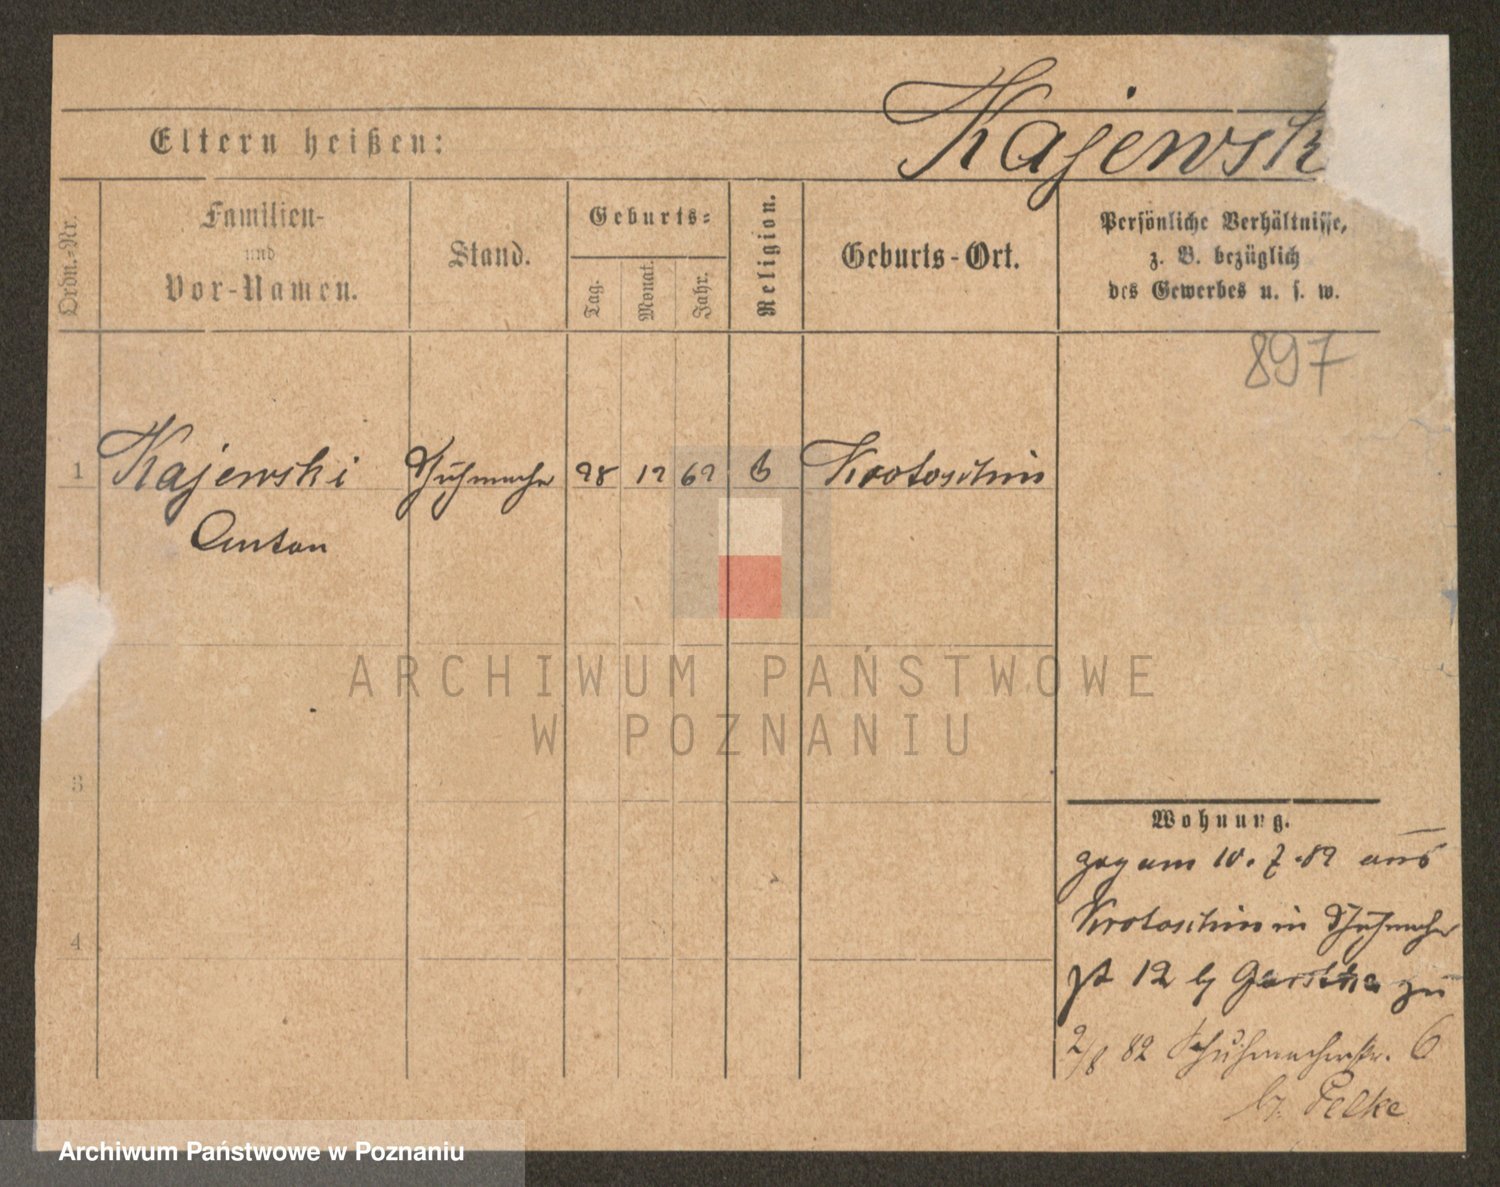 Kajewsk
Eltern heißen:
Ordn.-Nr.
Familien-
und
Vor-Namen.
Stand.
Geburts-
Tag.
Monat.
Jahr.
Religion.
Geburts-Ort.
Persönliche Verhältnisse,
z. B. bezüglich
des Gewerbes u. s. w.
897
1 Kajewski Schuhmacher 28 12 62 Krotoschin
Anton
3
4
ARCHIWUM PAŃSTWOWE
W POZNANIU
Wohnung.
zog am 10. 7. 82 aus
Krotoschin in Schuhmacher
st 12 bei zu
2/8 82 Schuhmacherstr. 6
bei Pelke
Archiwum Państwowe w Poznaniu